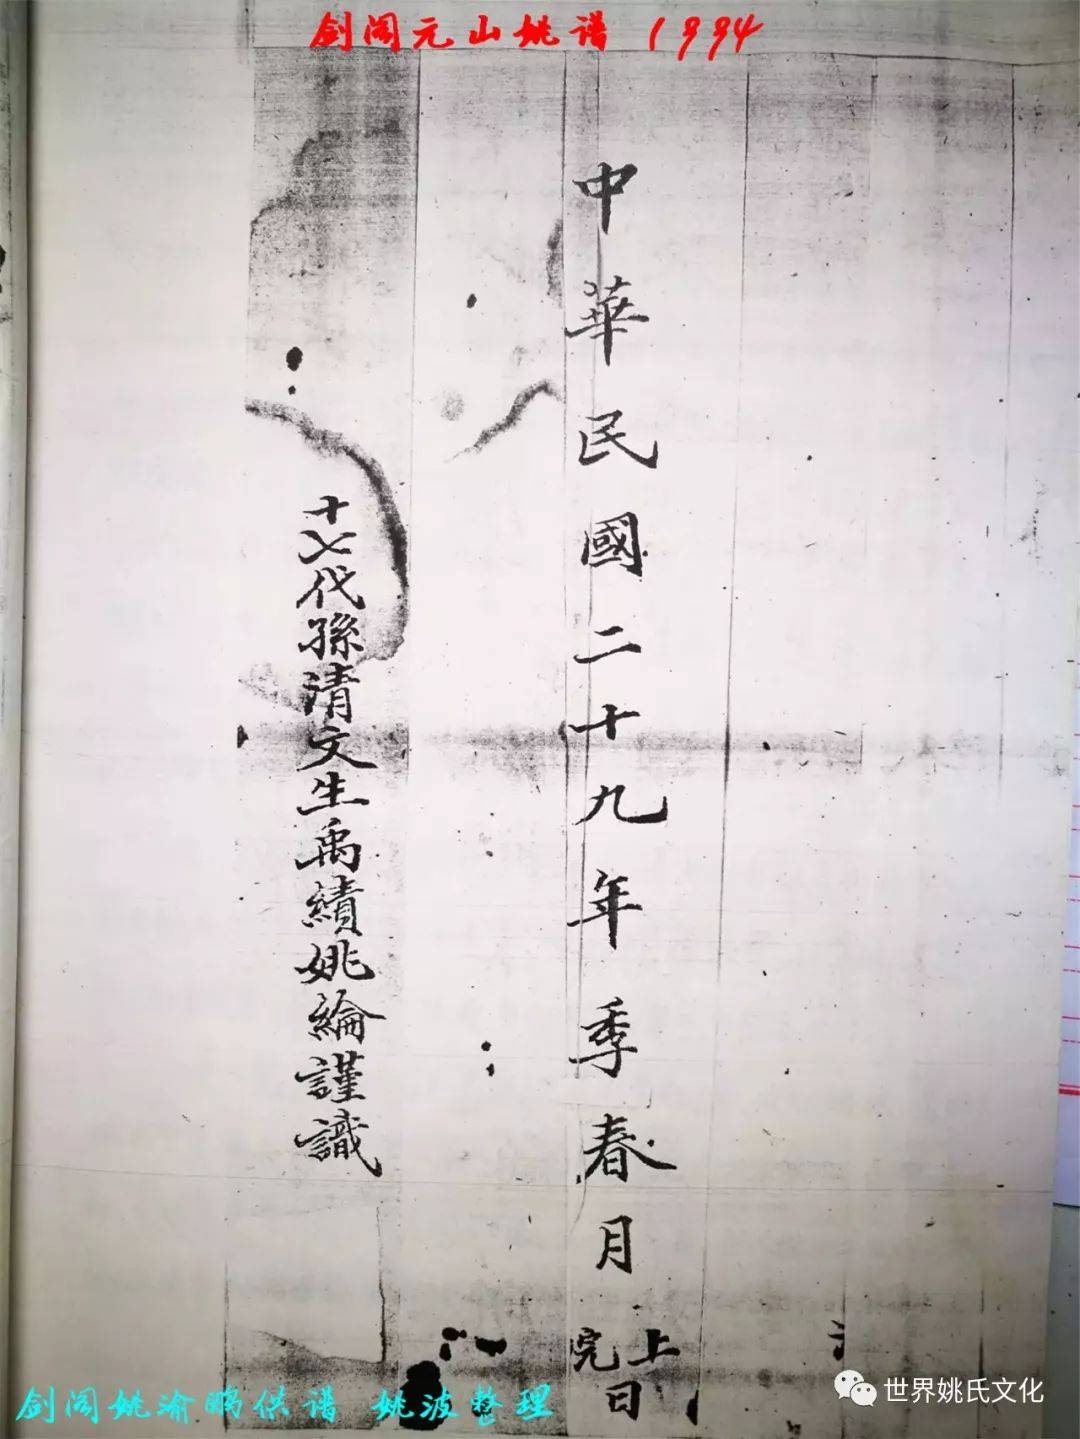 剑阁元山姚谱 1994
中華民國二十九年季春月上完日
十七代孫清文生禹績姚綸謹識
剑阁姚渝鹏供谱 姚波整理
世界姚氏文化